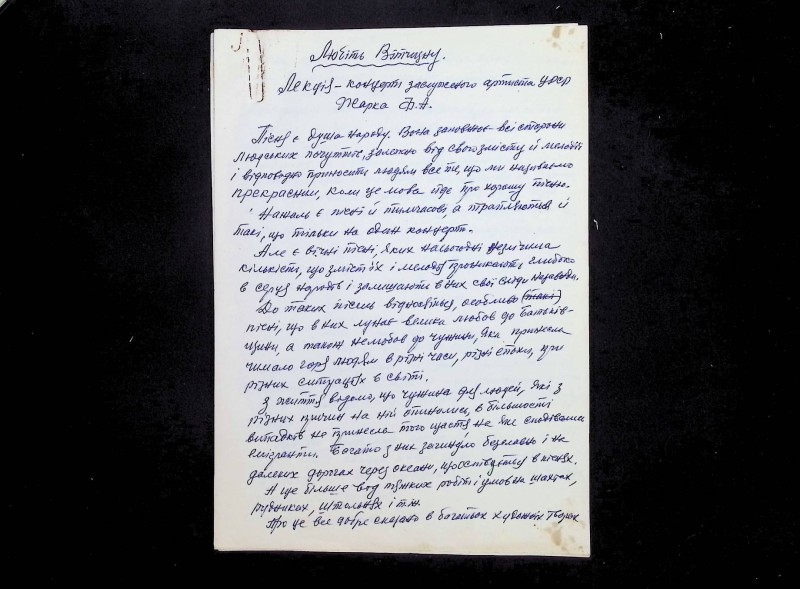 Любіть Вітчизну.
Лекція – концерт заслуженого артиста УРСР
Жарка Ф.А.
Пісня є душа народу. Вона заповнює всі сторони
людських почуттів, залежно від свого змісту й мелодії
і відповідно приносить людям все те, що ми називаємо
прекрасним, коли це мова йде про хорошу пісню.
Нажаль є пісні й тимчасові, а трапляються й
такі, що тільки на один концерт.
Але є вічні пісні, яких на сьогодні незлічима
кількість, що зміст їх і мелодії проникають глибоко
в серця народів і залишають в них свої сліди назавжди.
До таких пісень відносяться, особливо (такі)
пісні, що в них лунає велика любов до Батьків-
щини, а також нелюбов до чужини, яка принесла
чимало горя людям в різні часи, різні епохи, при
різних ситуаціях в світі.
З життя відомо, що чужина для людей, які з
різних причин на ній опинились, в більшості
випадків не принесла того щастя на яке сподівались
емігранти. Багато з них загинуло безславно і на
далеких дорогах через океани, що оспівується в піснях.
А ще більше від тяжких робіт і умов в шахтах,
рудниках, штольнях і т.ін.
Про це все добре сказано в багатьох художніх творах